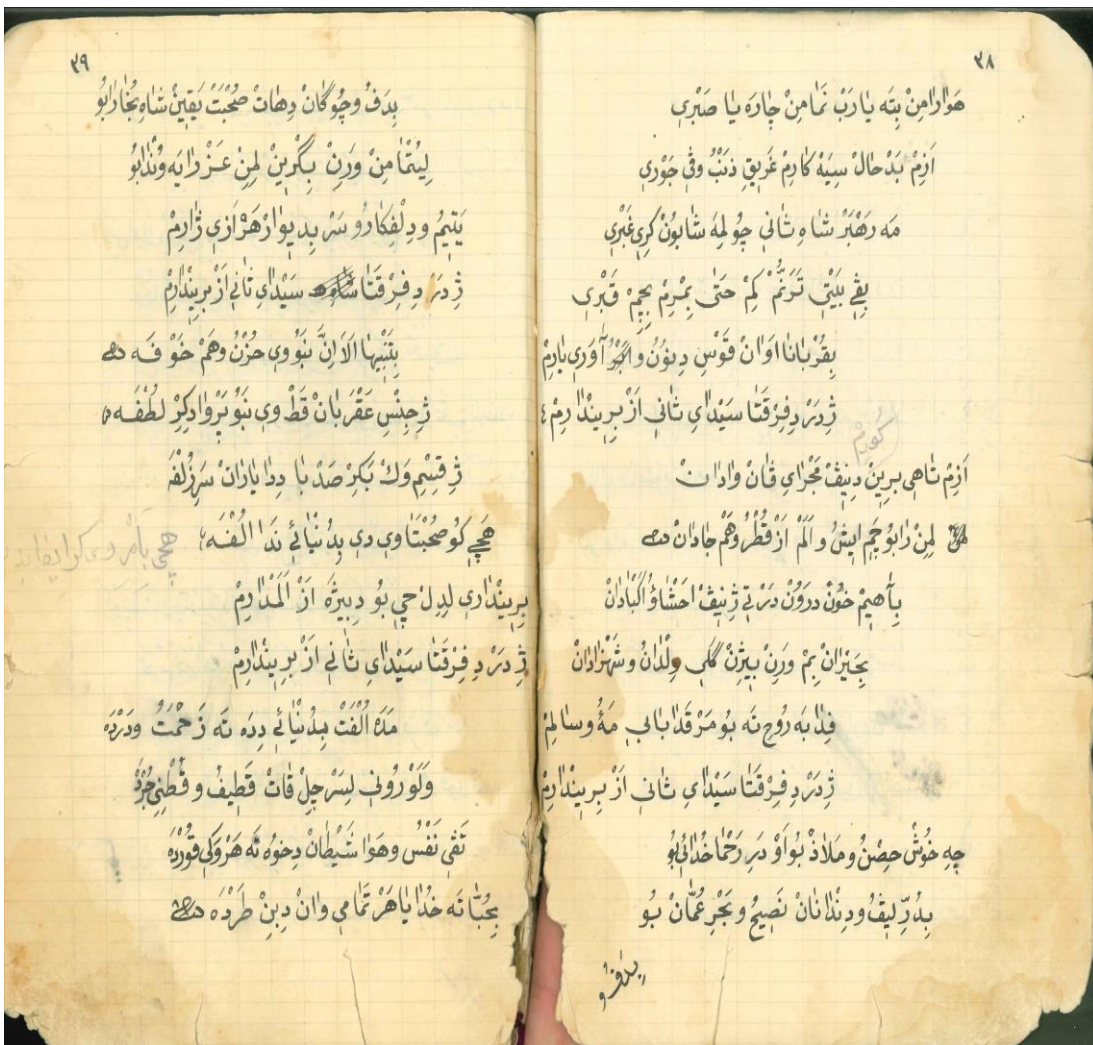 ٣٨
هَوَارَا مِنْ بِتَه يَا رَبْ نَمَا مِنْ چَارَه يَا صَبْرِى
اَزِمْ بَدْ حَالْ سِيَهْ كَارِمْ غَرِيقِ ذَنْبُ وفِى جَوْرِى
مَه رَهْبَرْ شَاهِ ثَانِى چُو لِمَه شَابُونْ كِرِى غَبْرِى
بِڤِى بَيْتِى تَرَنُّمْ كِمْ حَتٰى بِمْرِمْ بِچِمْ قَبْرِى
بِقُرْبَانَا اَوَانْ قَوْسِ دِنُونُ و آوَرِى بَارِمْ
ژِ دَرْدِ فِرْقَتَا سَيْدَاىِ ثَانِى اَزْ بِرِينْدَارِمْ
اَزِمْ تَاهِى بِرِينْ دِنِيڤْ مَجْرَاىِ ڤَانْ وَادَانْ
لِمِنْ رَابُو چِمْ اَيشُ و اَلَمْ اَزْ قُطْرُ وهَمْ جَادَانْ
بِآهِيمْ خُونْ دَرُونْ دَرْتِى ژِنِيڤْ اَحْشَاؤُ اَكْبَادَانْ
بِجَيْرَانْ بِمْ وَرِنْ بِيژِنْ گَلِى وِلْدَانُ و شَهْزَادَانْ
فِدَا بَه رُوحِ تَه بُو مَرْقَدَا بَابِى مَهُ وسَالِمْ
ژِ دَرْدِ فِرْقَتَا سَيْدَاىِ ثَانِى اَزْ بِرِينْدَارِمْ
چِه خُوشْ حِصْنُ و مَلَاذْ بُو اَوْ دَرِ رَحْمَا خُدَائِى بُو
بِدُرِّ لِيڤُ ودِنْدَانَانْ نَصِيحُ و بَحْرِ عُمَّانْ بُو
بدفو
٣٩
بِدَفُ وچُوگَانْ دِهَاتْ صُحْبَتْ يَقِينْ شَاهِ بُخَارَا بُو
لِيُتْمَا مِنْ وَرِنْ بِگْرِينْ لِمِنْ عَزْرَايَه وُنْدَا بُو
يَتِيمُ ودِلْفِكَارُو سَرْ بِدِيوَارْ هَرْ اَزِى ژَارِمْ
ژِ دَرْدِ فِرْقَتَا سَيْدَاىِ ثَانِى اَزْ بِرِينْدَارِمْ
بِتَنْبِيهَا اَلَا اِنَّ نَبُو وِى حُزْنُ وهَمْ خَوْفَه
ژِ جِنْسِ عَقْرَبَانْ قَطْ وِى نَبُو پَرْوَا دِكِرْ لُطْفَه
ژِ قِسْمِ وَكْ بَكِرْ صَدْ بَا دِدَا يَارَانْ سَرِ زُلْفَه
هَچِى كُو صُحْبَتَا وِى دِى بِدُنْيَائِى نَدَا اُلْفَه
هچى
بِرِينْدَارِى لِدِلْ چِى بُو دِبِيژَه اَزْ اَلَمْدَارِمْ
ژِ دَرْدِ فِرْقَتَا سَيْدَاىِ ثَانِى اَزْ بِرِينْدَارِمْ
مَدَه اُلْفَتْ بِدُنْيَائِى دِدَه تَه زَحْمَتُ ودَرْدَه
وَلَوْ رُونِى لِسَرْ جِلْ قَاتْ قَطِيفُ و قُطْنِى جُرْدَه
تَڤِى نَفْسُ وهَوَا شَيْطَانْ دِخُوَه تَه هَرْوَكِى قُورْدَه
بِحُبَّا تَه خُدَا يَا هَرْ تَمَامِى وَانْ دِبِنْ طَرْدَه